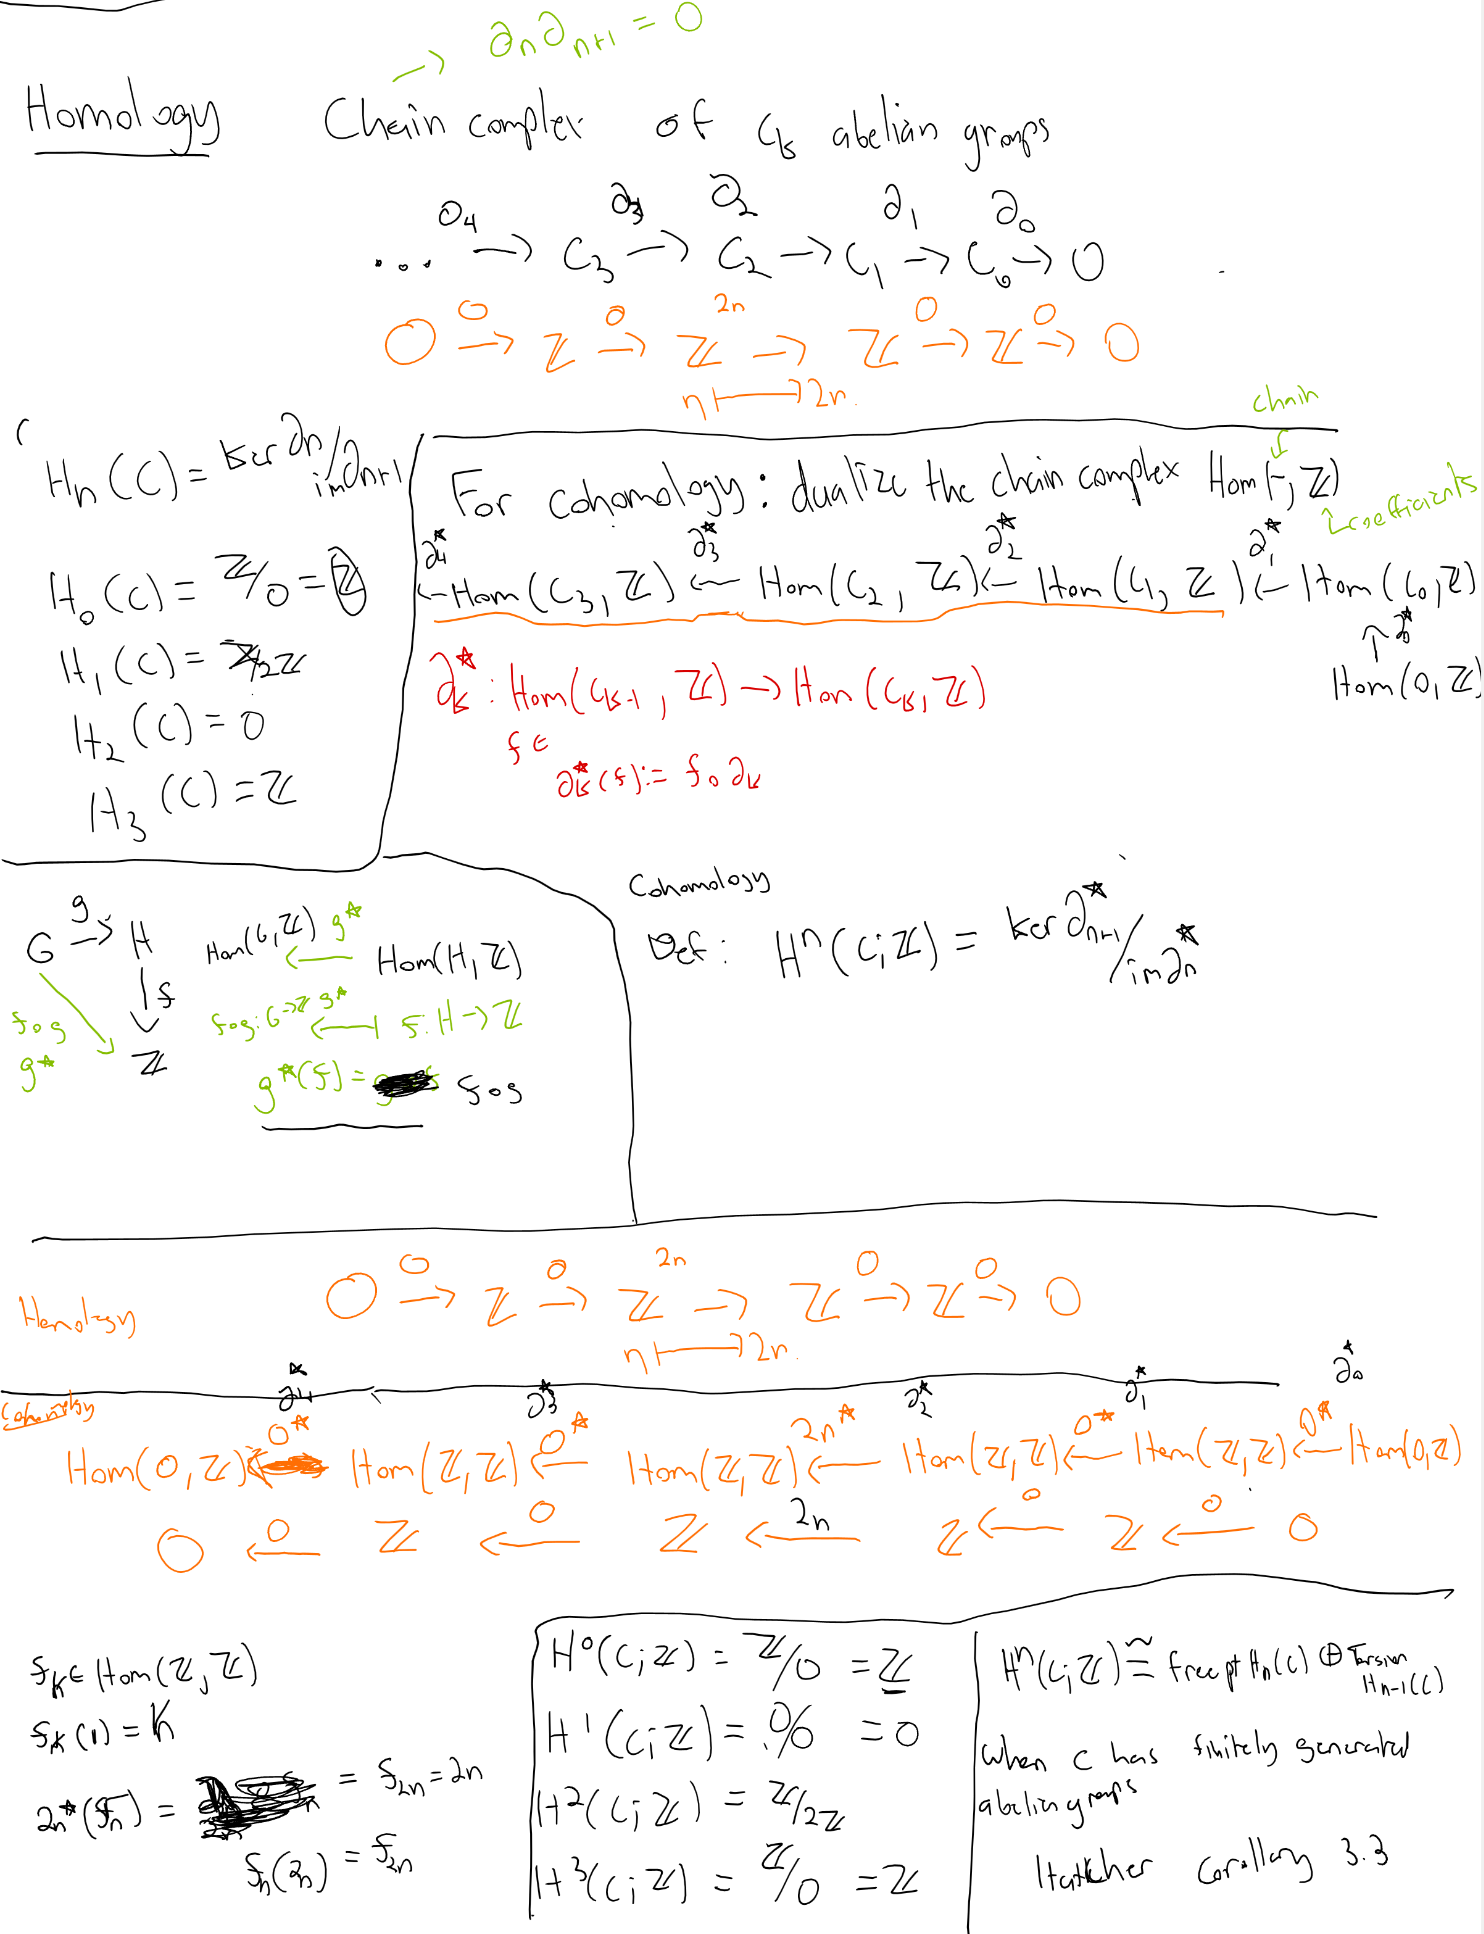 → ∂n∂n+1 = 0
Homology Chain complex of Ck abelian groups
∂4 ∂3 ∂2 ∂1 ∂0
... → C3 → C2 → C1 → C0 → 0
0 0 2n 0 0
0 → ℤ → ℤ → ℤ → ℤ → 0
n ↦ 2n.
Hn(C) = ker ∂n / im ∂n+1
H0(C) = ℤ/0 = ℤ
H1(C) = ℤ/2ℤ
H2(C) = 0
H3(C) = ℤ
chain
For cohomology: dualize the chain complex Hom(-, ℤ)
coefficients
∂4* ∂3* ∂2* ∂1*
← Hom(C3, ℤ) ← Hom(C2, ℤ) ← Hom(C1, ℤ) ← Hom(C0, ℤ)
↑ ∂0*
Hom(0, ℤ)
∂k* : Hom(Ck-1, ℤ) → Hom(Ck, ℤ)
f ∈
∂k*(f) := f ∘ ∂k
G g→ H
↓ f
f∘g
g* ℤ
Hom(G, ℤ) g* ← Hom(H, ℤ)
f∘g: G→ℤ g* ↤ f: H → ℤ
g*(f) = f∘g
Cohomology
Def: Hⁿ(C; ℤ) = ker ∂n+1* / im ∂n*
0 0 2n 0 0
Homology 0 → ℤ → ℤ → ℤ → ℤ → 0
n ↦ 2n.
∂4* ∂3* ∂2* ∂1* ∂0*
Cohomology
0* 0* 2n* 0* 0*
Hom(0, ℤ) ← Hom(ℤ, ℤ) ← Hom(ℤ, ℤ) ← Hom(ℤ, ℤ) ← Hom(ℤ, ℤ) ← Hom(0, ℤ)
0 0 2n 0 0
0 ← ℤ ← ℤ ← ℤ ← ℤ ← 0
fk ∈ Hom(ℤ, ℤ)
fk(1) = k
2n*(fn) = = f2n = 2n
fn(2n) = f2n
H⁰(C; ℤ) = ℤ/0 = ℤ
H¹(C; ℤ) = 0/0 = 0
H²(C; ℤ) = ℤ/2ℤ
H³(C; ℤ) = ℤ/0 = ℤ
Hⁿ(C; ℤ) ≅ free pt Hn(C) ⊕ Torsion Hn-1(C)
when C has finitely generated
abelian groups
Hatcher Corollary 3.3